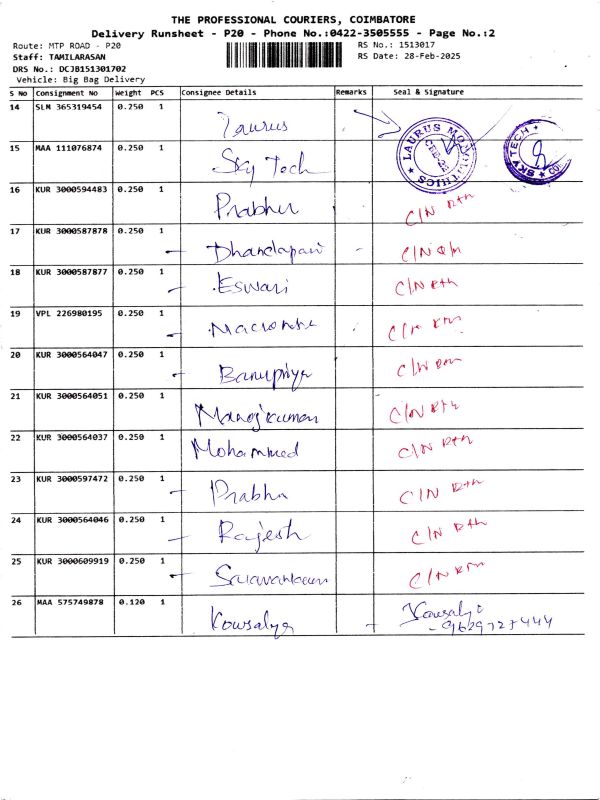 THE PROFESSIONAL COURIERS, COIMBATORE
Delivery Runsheet - P20 - Phone No.:0422-3505555 - Page No.:2
Route: MTP ROAD - P20 RS No.: 1513017
Staff: TAMILARASAN RS Date: 28-Feb-2025
DRS No.: DCJB151301702
Vehicle: Big Bag Delivery
S No Consignment No Weight PCS Consignee Details Remarks Seal & Signature
14 SLM 365319454 0.250 1 Taurus LAURUS MONOLITHICS
15 MAA 111076874 0.250 1 Sky Tech SKY TECH
16 KUR 3000594483 0.250 1 Prabhu C/N Rth
17 KUR 3000587878 0.250 1 Dhandapani C/N
18 KUR 3000587877 0.250 1 Eswari C/N Rth
19 VPL 226980195 0.250 1 C/N
20 KUR 3000564047 0.250 1 Banupriya C/N
21 KUR 3000564051 0.250 1 Manojkumar C/N Rth
22 KUR 3000564037 0.250 1 Mohammed C/N Rth
23 KUR 3000597472 0.250 1 Prabhu C/N Rth
24 KUR 3000564046 0.250 1 Rajesh C/N Rth
25 KUR 3000609919 0.250 1 C/N
26 MAA 575749878 0.120 1 Kowsalya Kowsalya